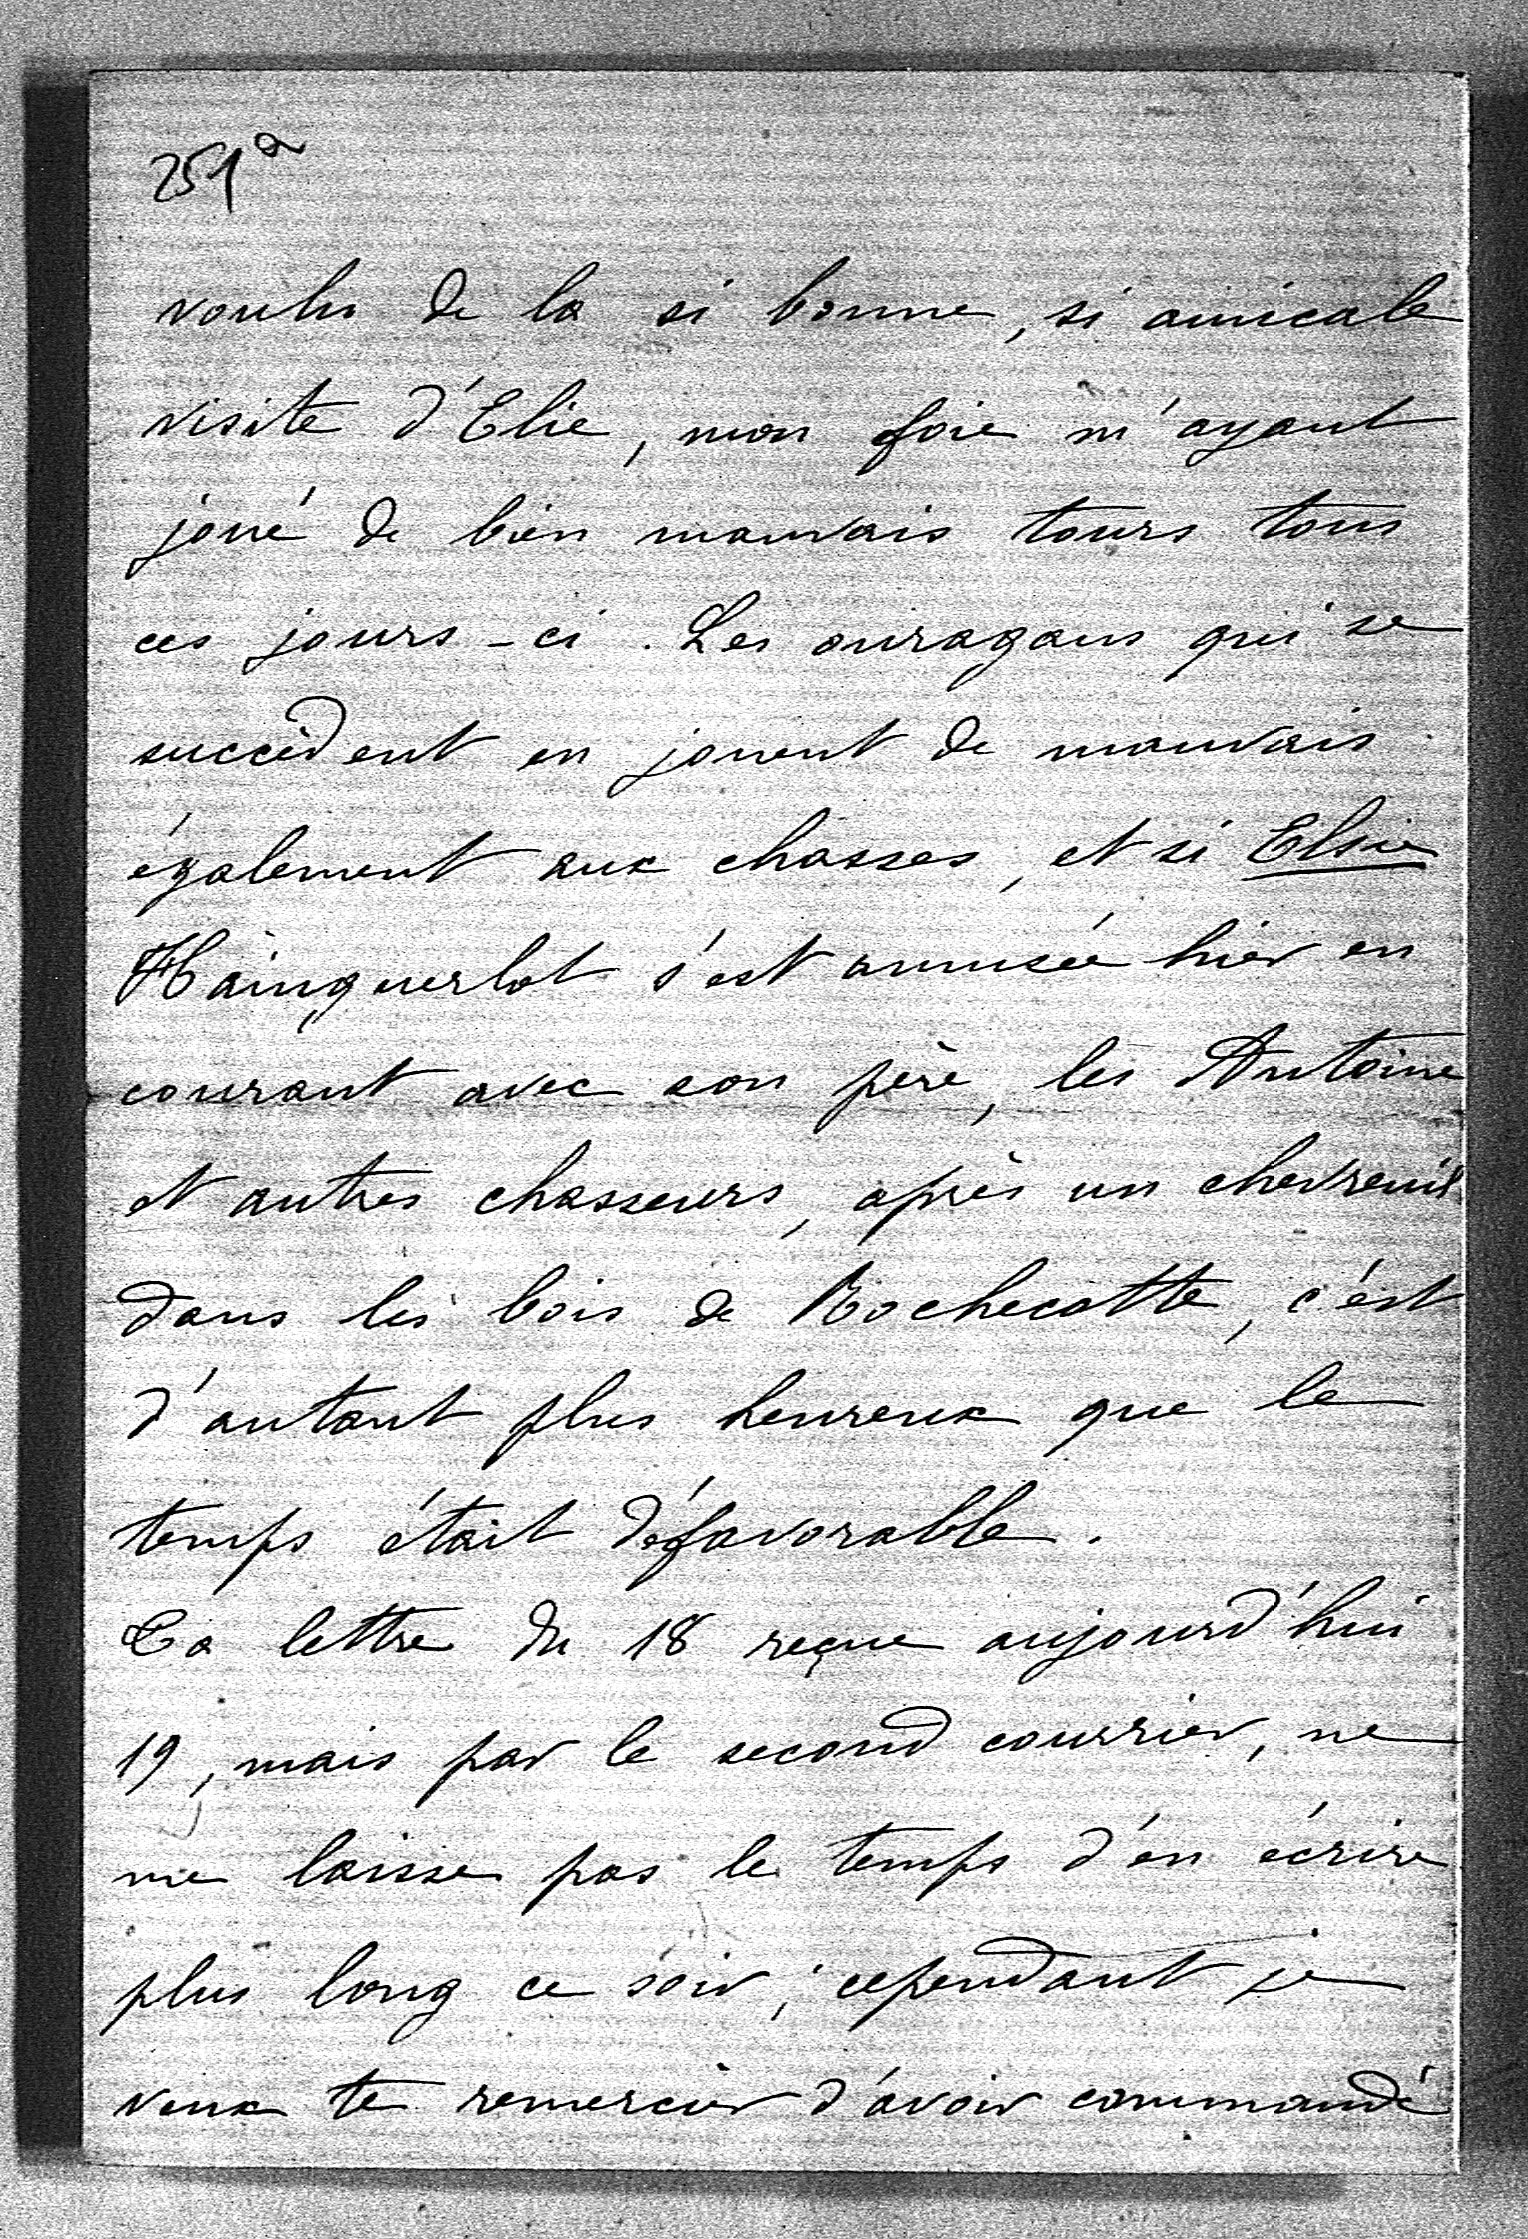 251a
voulu de la si bonne, si amicale
visite d'Elie, mon foie m'ayant
joué de bien mauvais tours tous
ces jours-ci. Les ouragans qui se
succèdent en jouent de mauvais
également aux chasses, et si Elsie
Hainguerlot s'est amusée hier en
courant avec son père, les Antoine
et autres chasseurs, après un chevreuil
dans les bois de Rochecotte, c'est
d'autant plus heureux que le
temps était défavorable.
Ta lettre du 18 reçue aujourd'hui
19, mais par le second courrier, ne
me laisse pas le temps d'en écrire
plus long ce soir; cependant je
veux te remercier d'avoir commandé